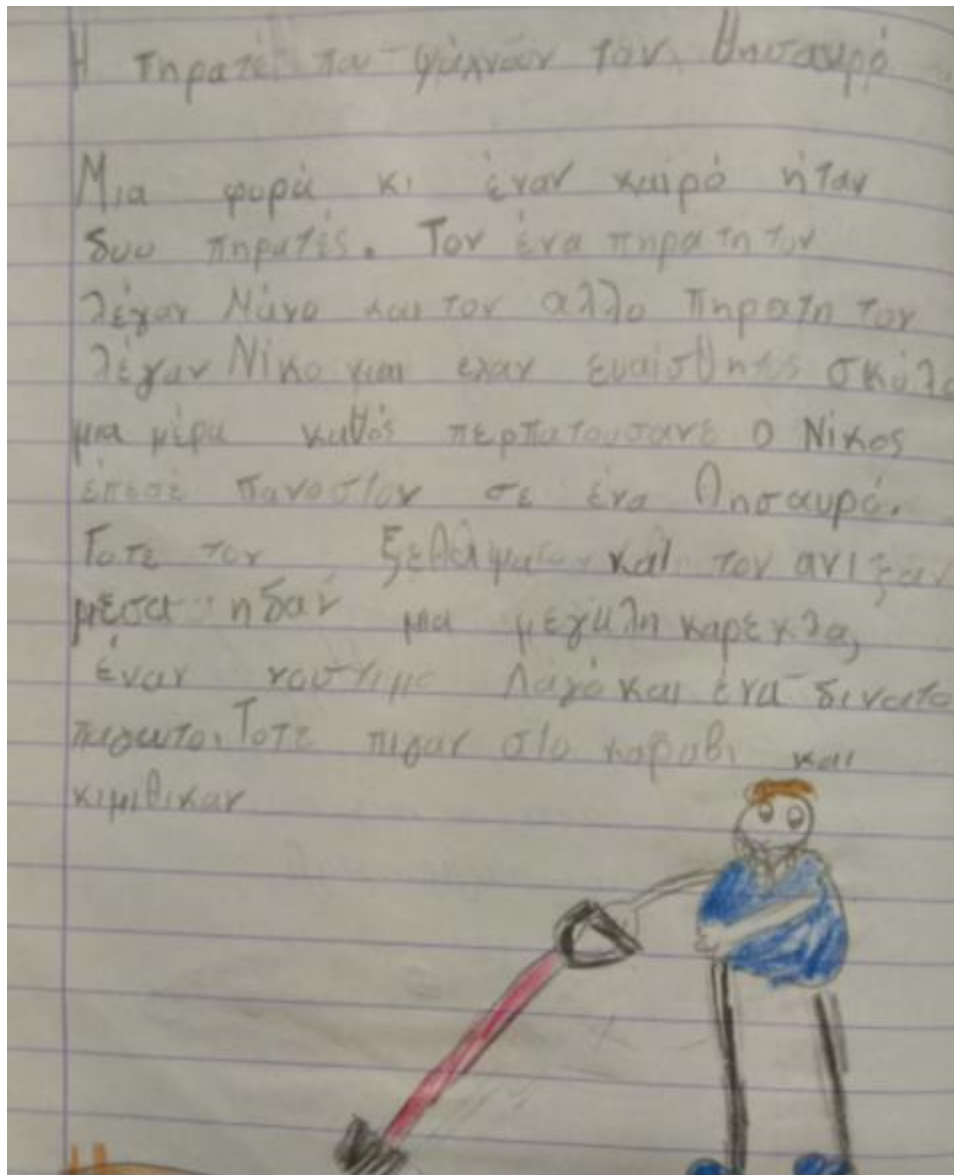 Η πηρατές που ψάχναν τον θησαυρό
Μια φορά κι έναν καιρό ήταν
δυο πηρατές. Τον ένα πηρατη τον
λέγαν Νάνο και τον αλλο πηρατη τον
λέγαν Νίκο και εχαν ευαίσθητος σκύλο
μια μέρα καθός περπατουσανε ο Νίκος
έπεσε πανοστον σε ένα θησαυρό.
Τοτε τον ξεθάψαν και τον ανιξαν
μέσα ηδαν μια μεγάλη καρέκλα,
έναν νοστιμο λαγό και ένα δινατο
παγωτο. Τοτε πιγαν στο καραβι και
κιμιθικαν